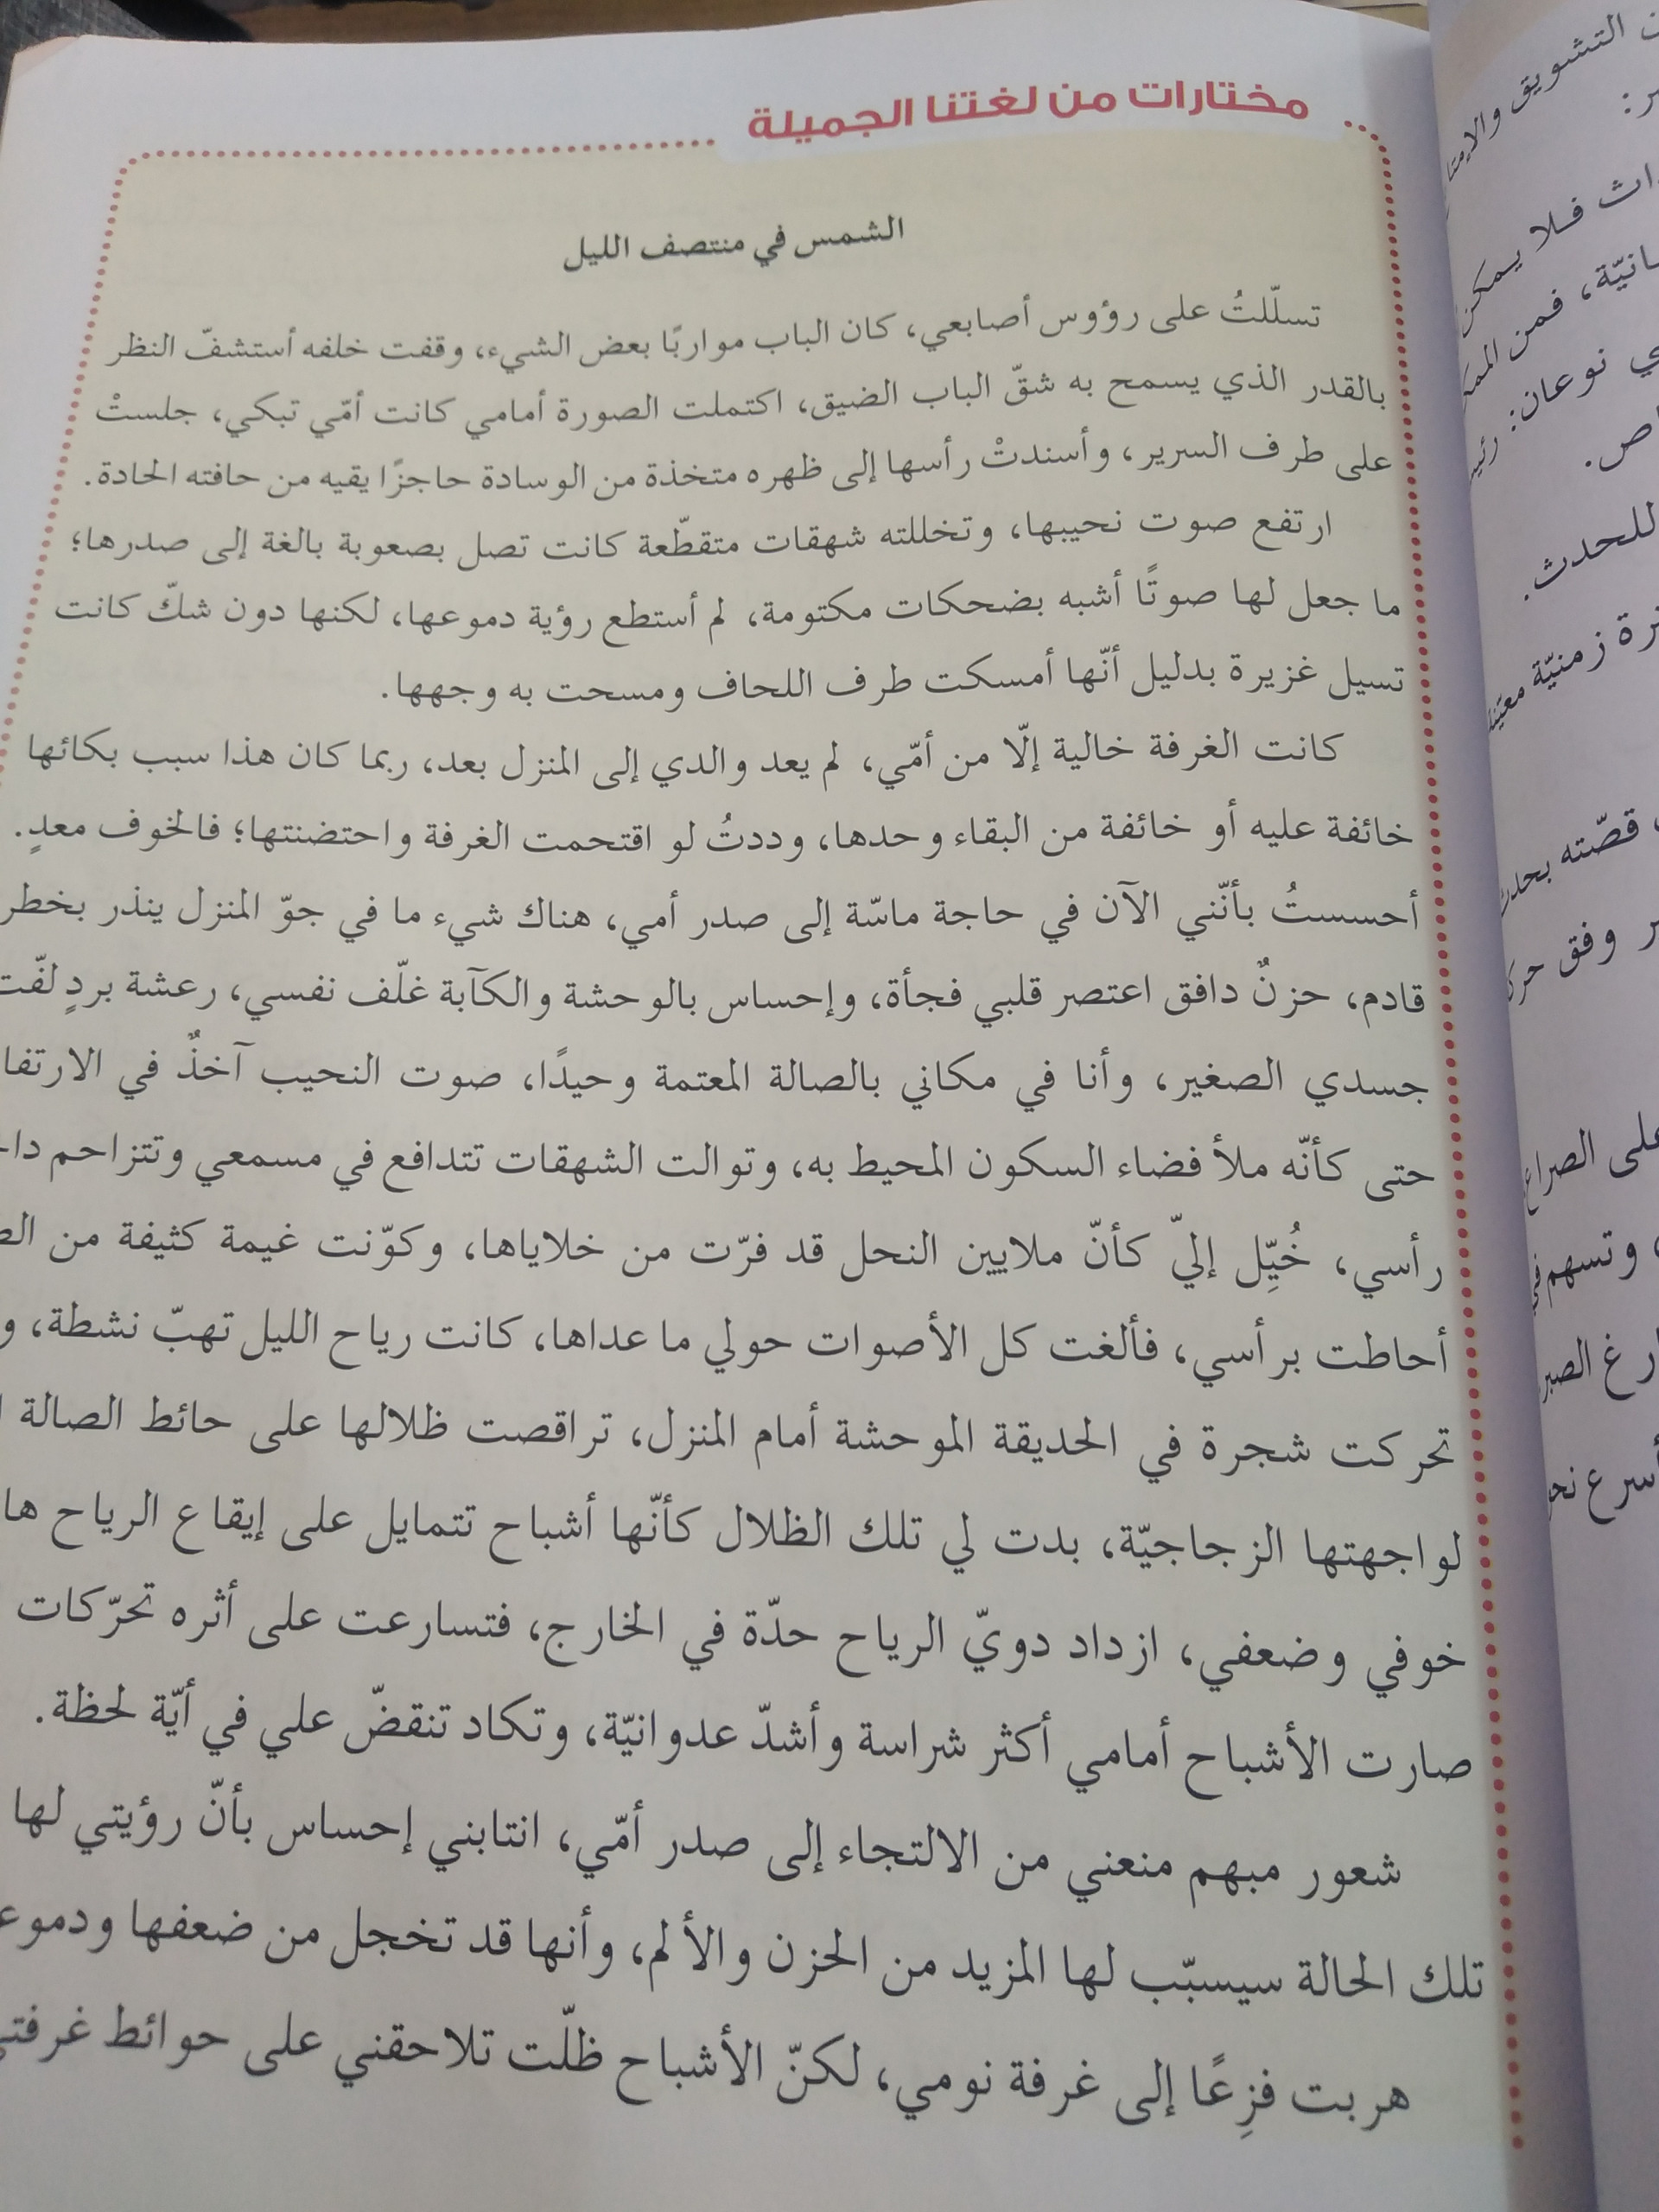 مختارات من لغتنا الجميلة
الشمس في منتصف الليل
تسلّلتُ على رؤوس أصابعي، كان الباب مواربًا بعض الشيء، وقفت خلفه أستشفّ النظر
بالقدر الذي يسمح به شقّ الباب الضيق، اكتملت الصورة أمامي كانت أمّي تبكي، جلستْ
على طرف السرير، وأسندتْ رأسها إلى ظهره متخذة من الوسادة حاجزًا يقيه من حافته الحادة.
ارتفع صوت نحيبها، وتخللته شهقات متقطّعة كانت تصل بصعوبة بالغة إلى صدرها؛
ما جعل لها صوتًا أشبه بضحكات مكتومة، لم أستطع رؤية دموعها، لكنها دون شكّ كانت
تسيل غزيرة بدليل أنّها أمسكت طرف اللحاف ومسحت به وجهها.
كانت الغرفة خالية إلّا من أمّي، لم يعد والدي إلى المنزل بعد، ربما كان هذا سبب بكائها
خائفة عليه أو خائفة من البقاء وحدها، وددتُ لو اقتحمت الغرفة واحتضنتها؛ فالخوف معدٍ.
أحسستُ بأنّني الآن في حاجة ماسّة إلى صدر أمي، هناك شيء ما في جوّ المنزل ينذر بخطر
قادم، حزنٌ دافق اعتصر قلبي فجأة، وإحساس بالوحشة والكآبة غلّف نفسي، رعشة بردٍ لفّت
جسدي الصغير، وأنا في مكاني بالصالة المعتمة وحيدًا، صوت النحيب آخذٌ في
حتى كأنّه ملأ فضاء السكون المحيط به، وتوالت الشهقات تتدافع في مسمعي وتتزاحم
رأسي، خُيِّل إليّ كأنّ ملايين النحل قد فرّت من خلاياها، وكوّنت غيمة كثيفة من
أحاطت برأسي، فألغت كل الأصوات حولي ما عداها، كانت رياح الليل تهبّ نشطة، و
تحركت شجرة في الحديقة الموحشة أمام المنزل، تراقصت ظلالها على حائط الصالة
لواجهتها الزجاجيّة، بدت لي تلك الظلال كأنّها أشباح تتمايل على إيقاع الرياح
خوفي وضعفي، ازداد دويّ الرياح حدّة في الخارج، فتسارعت على أثره تحرّكات
صارت الأشباح أمامي أكثر شراسة وأشدّ عدوانيّة، وتكاد تنقضّ علي في أيّة لحظة.
شعور مبهم منعني من الالتجاء إلى صدر أمّي، انتابني إحساس بأنّ رؤيتي لها
تلك الحالة سيسبّب لها المزيد من الحزن والألم، وأنها قد تخجل من ضعفها
هربت فزِعًا إلى غرفة نومي، لكنّ الأشباح ظلّت تلاحقني على حوائط
التشويق
فلا يمكن
فمن
نوعان:
للحدث.
زمنيّة
قصّته
وفق
الصراع
وتسهم